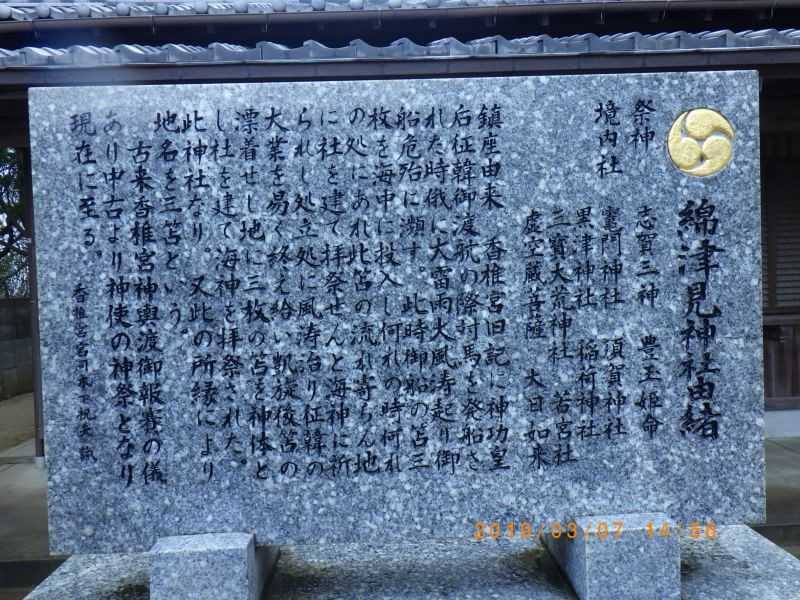 綿津見神社由緒
祭神 志賀三神 豊玉姫命
境内社 竈門神社 須賀神社
黒津神社 稲荷神社
三寳大荒神社 若宮社
虚空蔵菩薩 大日如来
鎮座由来 香椎宮旧記に神功皇
后征韓御渡航の際対馬を発船さ
れた時俄に大雷雨大風涛起り御
船危殆に瀕す。此時御船の笘三
枚を海中に投入し何れの時何れ
の処にあれ此笘の流れ寄らん地
に社を建て拝祭せんと海神に祈
られし処立処に風涛治り征韓の
大業を易く終え給い凱旋後笘の
漂着せし地に三枚の笘を神体と
し社を建て海神を拝祭された。
此神社なり。又此の所縁により
地名を三笘という。
古来香椎宮神輿渡御報賽の儀
あり中古より神使の神祭となり
現在に至る。
香椎宮宮司木下祝夫 誌
2019/03/07 14:56